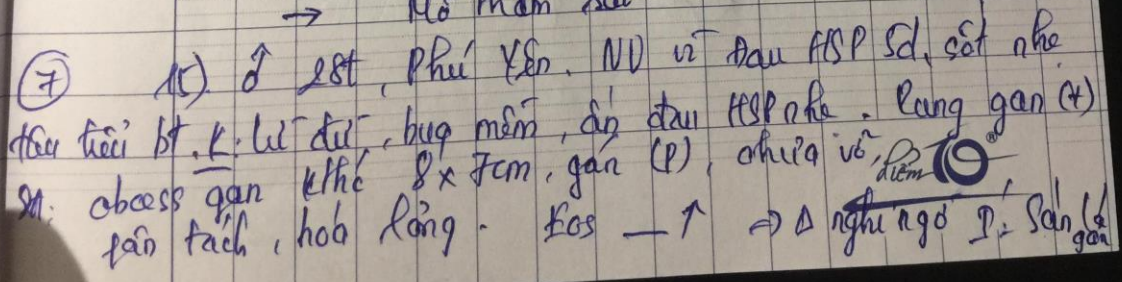 → Mổ
⑦ 15). ♂ 28t, Phú Yên. NV vì Đau HSP 5d, sốt nhẹ
tiêu tiểu bt. K: lừ đừ, bụng mềm, ấn đau HSP nhẹ. Rung gan (+)
SA: abcess gan kthc 8x7cm, gan (P), chưa vỡ,
phân tách, hoá lỏng. Eos _ ↑ ⇒ Δ nghi ngờ I: Sán lá gan
điểm 10